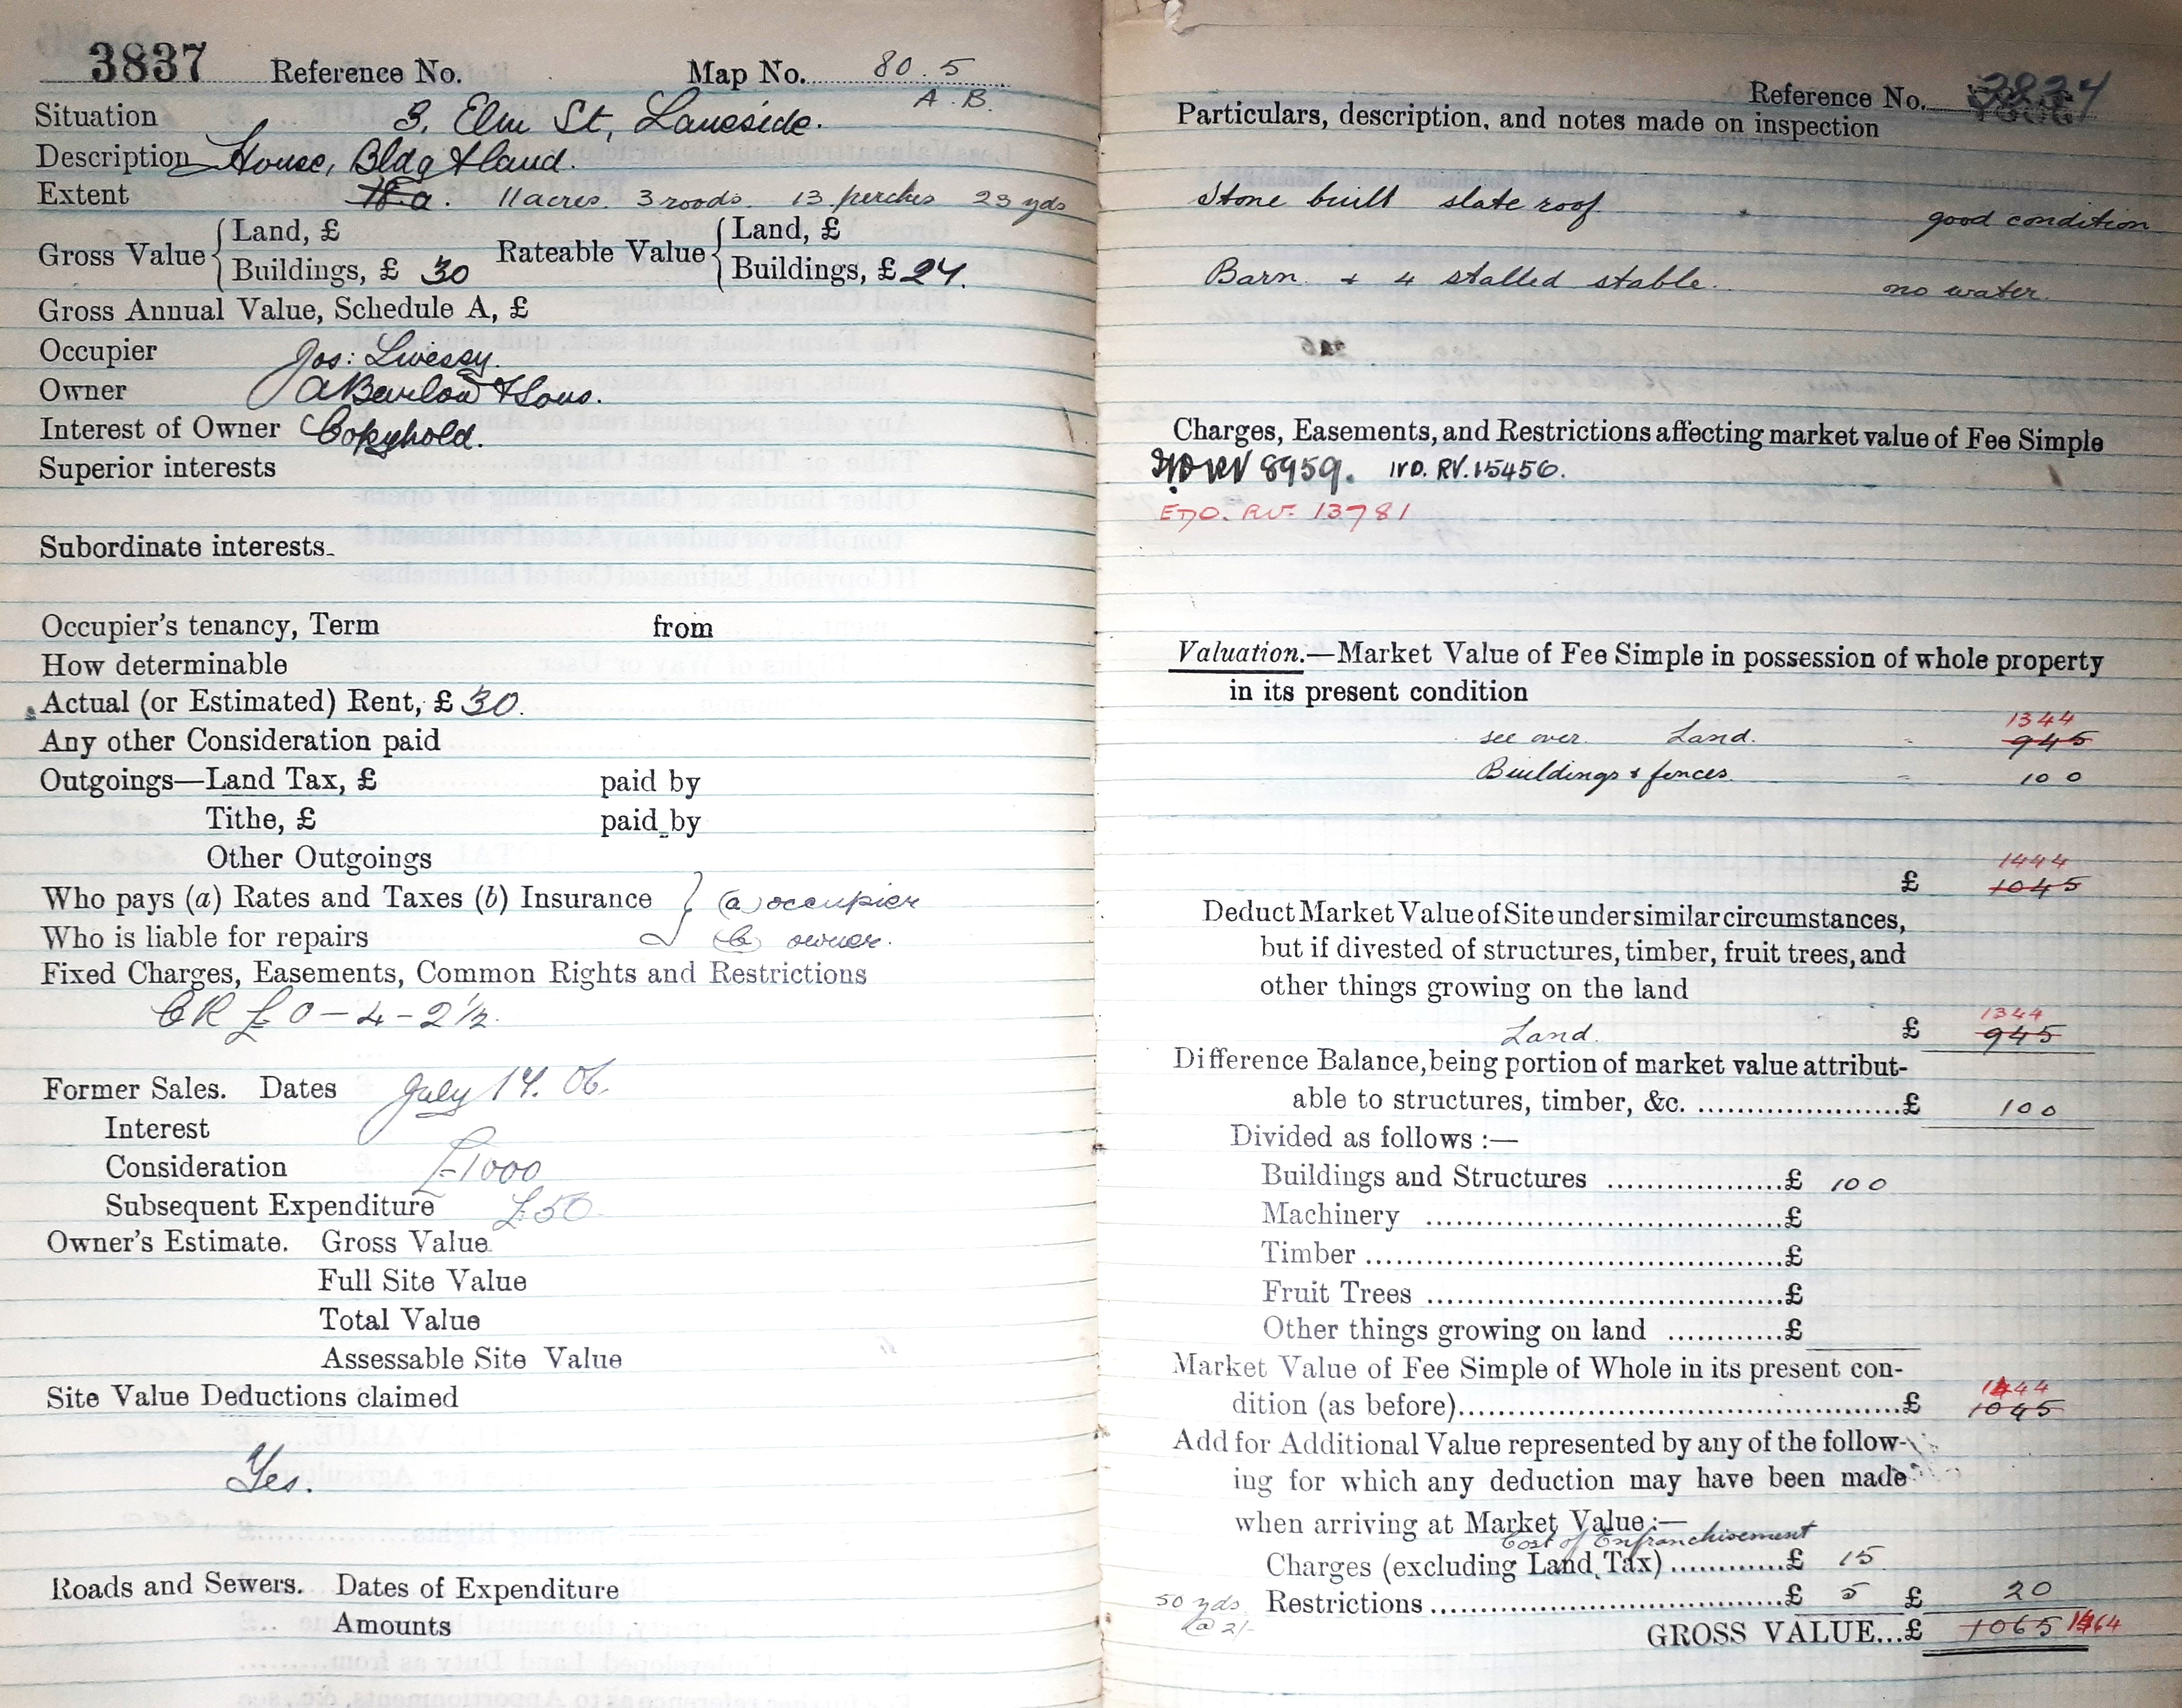 3837 Reference No. Map No. 80.5
A.B.
Situation 3, Elm St, Laneside.
Description House, Bldg & land.
Extent a. 11 acres. 3 roods. 13 perches 23 yds
Gross Value { Land, £ Rateable Value { Land, £
Buildings, £ 30 Buildings, £ 24.
Gross Annual Value, Schedule A, £
Occupier Jos: Livesey.
Owner A Barlow & Sons.
Interest of Owner Copyhold.
Superior interests
Subordinate interests
Occupier's tenancy, Term from
How determinable
Actual (or Estimated) Rent, £ 30.
Any other Consideration paid
Outgoings—Land Tax, £ paid by
Tithe, £ paid by
Other Outgoings
Who pays (a) Rates and Taxes (b) Insurance } (a) occupier
Who is liable for repairs (b) owner.
Fixed Charges, Easements, Common Rights and Restrictions
CR £0-4-2½.
Former Sales. Dates July 14. 06.
Interest
Consideration £1000
Subsequent Expenditure £50
Owner's Estimate. Gross Value
Full Site Value
Total Value
Assessable Site Value
Site Value Deductions claimed
Yes.
Roads and Sewers. Dates of Expenditure
Amounts
Reference No.
Particulars, description, and notes made on inspection
Stone built slate roof good condition
Barn & 4 stalled stable. no water.
Charges, Easements, and Restrictions affecting market value of Fee Simple
RV 8959. IVD. RV. 15456.
RV. 13781
Valuation.—Market Value of Fee Simple in possession of whole property
in its present condition
1344
see over. Land. 945
Buildings & fences. 100
1444
£ 1045
Deduct Market Value of Site under similar circumstances,
but if divested of structures, timber, fruit trees, and
other things growing on the land
1344
Land. £ 945
Difference Balance, being portion of market value attribut-
able to structures, timber, &c. £ 100
Divided as follows :—
Buildings and Structures £ 100
Machinery £
Timber £
Fruit Trees £
Other things growing on land £
Market Value of Fee Simple of Whole in its present con-
1444
dition (as before) £ 1045
Add for Additional Value represented by any of the follow-
ing for which any deduction may have been made
when arriving at Market Value :—
Cost of Enfranchisement
Charges (excluding Land Tax) £ 15
50 yds. Restrictions £ 5 £ 20
@ 2/-
GROSS VALUE...£ 1065 1464